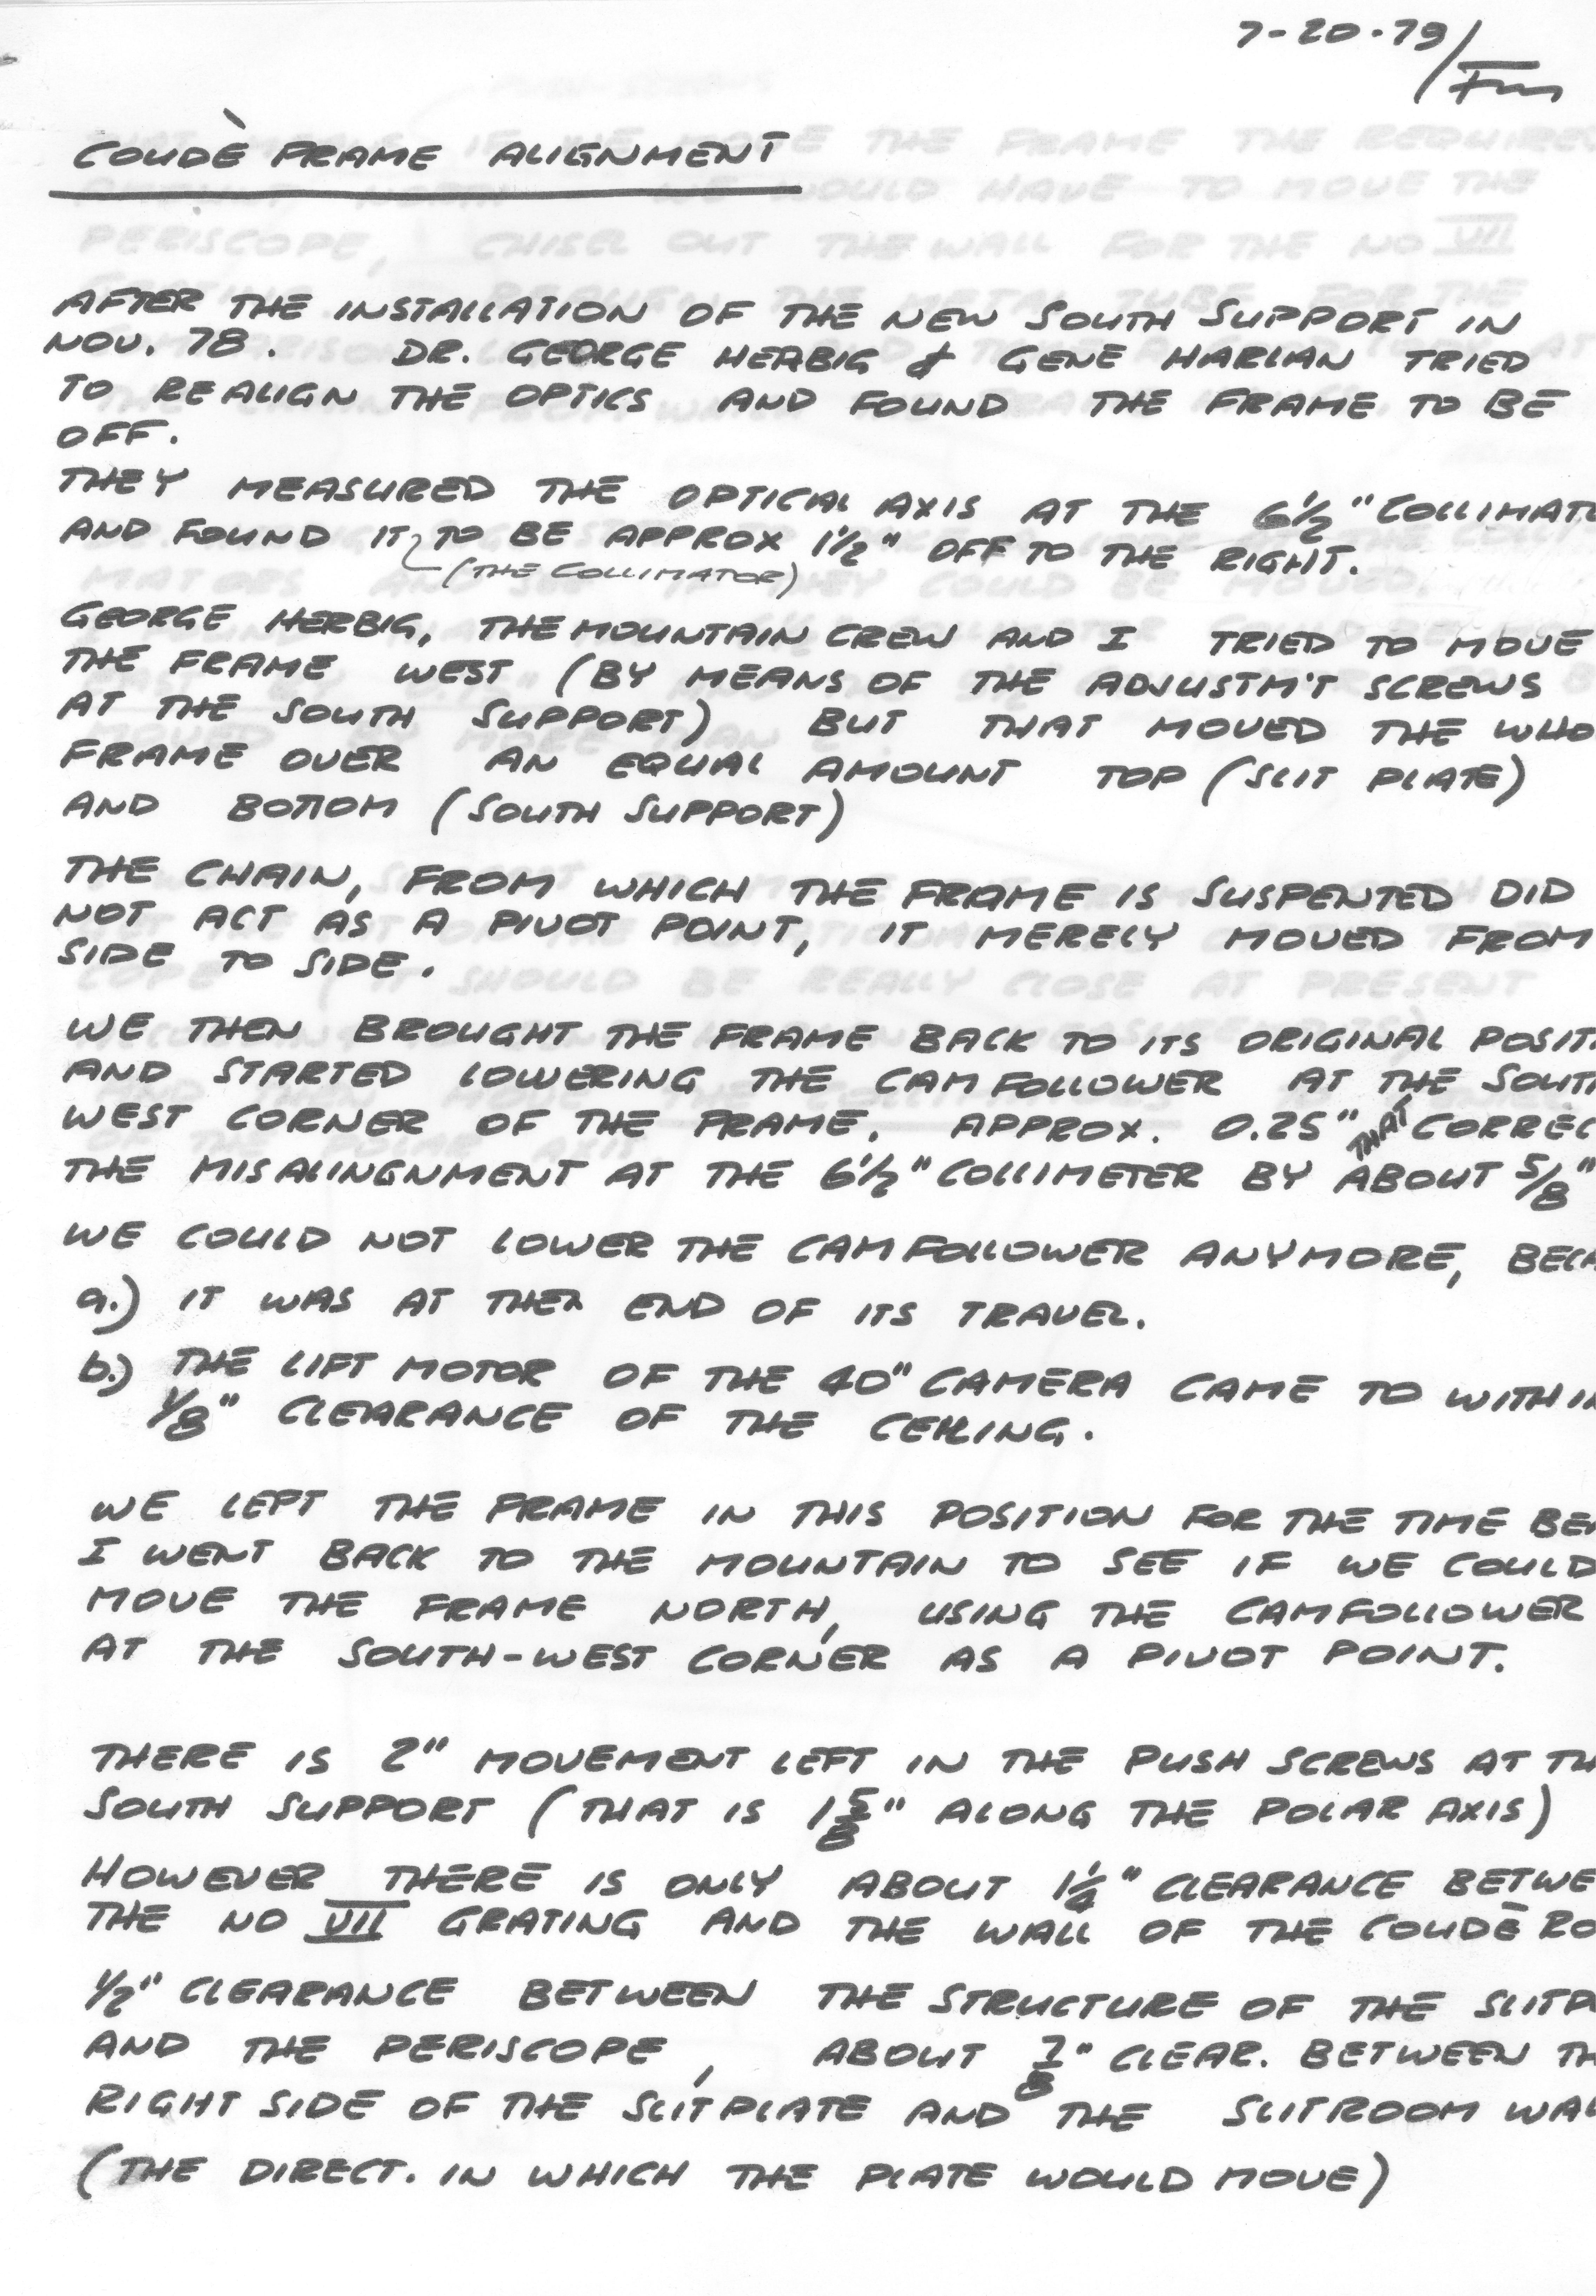 7-20-79/Fm
COUDÈ FRAME ALIGNMENT
AFTER THE INSTALLATION OF THE NEW SOUTH SUPPORT IN
NOV. 78. DR. GEORGE HERBIG & GENE HARLAN TRIED
TO REALIGN THE OPTICS AND FOUND THE FRAME TO BE
OFF.
THEY MEASURED THE OPTICAL AXIS AT THE 6½" COLLIMAT
AND FOUND IT TO BE APPROX 1½" OFF TO THE RIGHT.
(THE COLLIMATOR)
GEORGE HERBIG, THE MOUNTAIN CREW AND I TRIED TO MOVE
THE FRAME WEST (BY MEANS OF THE ADJUSTM'T SCREWS
AT THE SOUTH SUPPORT) BUT THAT MOVED THE WHO
FRAME OVER AN EQUAL AMOUNT TOP (SLIT PLATE)
AND BOTTOM (SOUTH SUPPORT)
THE CHAIN, FROM WHICH THE FRAME IS SUSPENTED DID
NOT ACT AS A PIVOT POINT, IT MERELY MOVED FROM
SIDE TO SIDE.
WE THEN BROUGHT THE FRAME BACK TO ITS ORIGINAL POSITI
AND STARTED LOWERING THE CAM FOLLOWER AT THE SOUT
WEST CORNER OF THE FRAME. APPROX. 0.25" THAT CORREC
THE MISALINGNMENT AT THE 6½" COLLIMETER BY ABOUT 5/8"
WE COULD NOT LOWER THE CAMFOLLOWER ANYMORE, BECA
a.) IT WAS AT THE END OF ITS TRAVEL.
b.) THE LIFT MOTOR OF THE 40" CAMERA CAME TO WITHIN
1/8" CLEARANCE OF THE CEILING.
WE LEFT THE FRAME IN THIS POSITION FOR THE TIME BEI
I WENT BACK TO THE MOUNTAIN TO SEE IF WE COULD
MOVE THE FRAME NORTH, USING THE CAMFOLLOWER
AT THE SOUTH-WEST CORNER AS A PIVOT POINT.
THERE IS 2" MOVEMENT LEFT IN THE PUSH SCREWS AT TH
SOUTH SUPPORT (THAT IS 1 5/8" ALONG THE POLAR AXIS)
HOWEVER THERE IS ONLY ABOUT 1¼" CLEARANCE BETWE
THE NO VII GRATING AND THE WALL OF THE COUDÈ RO
½" CLEARANCE BETWEEN THE STRUCTURE OF THE SLITPL
AND THE PERISCOPE, ABOUT 7/8" CLEAR. BETWEEN TH
RIGHT SIDE OF THE SLITPLATE AND THE SLITROOM WAL
(THE DIRECT. IN WHICH THE PLATE WOULD MOVE)